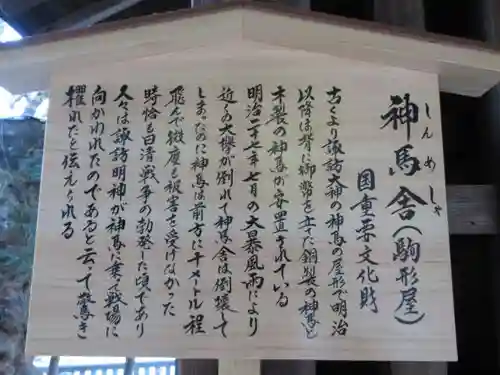 しんめしゃ
神馬舎(駒形屋)
国重要文化財
古くより諏訪大神の神馬の屋形で明治
以降は背に御幣を立た銅製の神馬と
木製の神馬が安置されている
明治二十七年七月の大暴風雨により
近くの大欅が倒れて神馬舎は倒壊して
しまったのに神馬は前方に十メートル程
飛んで微傷も被害を受けなかった
時恰も日清戦争の勃発した頃であり
人々は諏訪明神が神馬に乗て戦場に
向かわれたのであると云って驚き
懼れたと伝えられる